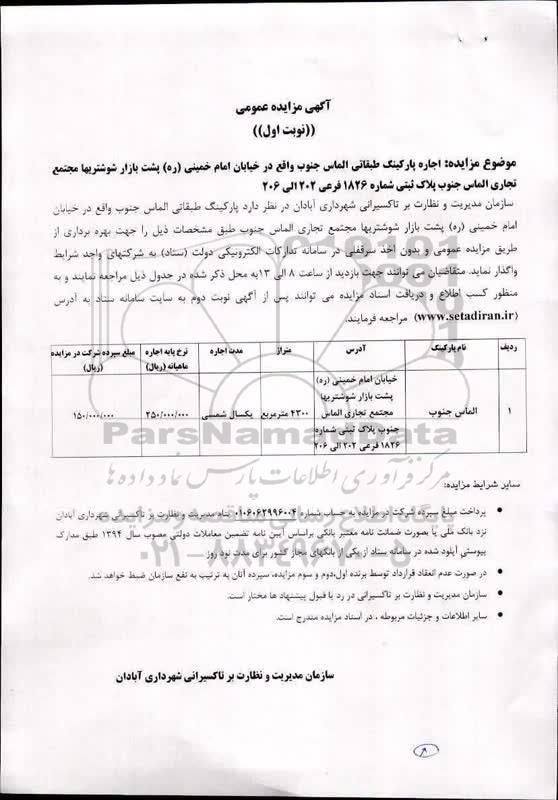 آگهی مزایده عمومی
((نوبت اول))
موضوع مزایده: اجاره پارکینگ طبقاتی الماس جنوب واقع در خیابان امام خمینی (ره) پشت بازار شوشتریها مجتمع
تجاری الماس جنوب پلاک ثبتی شماره ۱۸۲۶ فرعی ۲۰۲ الی ۲۰۶
سازمان مدیریت و نظارت بر تاکسیرانی شهرداری آبادان در نظر دارد پارکینگ طبقاتی الماس جنوب واقع در خیابان
امام خمینی (ره) پشت بازار شوشتریها مجتمع تجاری الماس جنوب طبق مشخصات ذیل را جهت بهره برداری از
طریق مزایده عمومی و بدون اخذ سرقفلی در سامانه تدارکات الکترونیکی دولت (ستاد) به شرکتهای واجد شرایط
واگذار نماید. متقاضیان می توانند جهت بازدید از ساعت ۸ الی ۱۳ به محل ذکر شده در جدول ذیل مراجعه نمایند و به
منظور کسب اطلاع و دریافت اسناد مزایده می توانند پس از آگهی نوبت دوم به سایت سامانه ستاد به آدرس
(www.setadiran.ir) مراجعه فرمایند.
ردیف نام پارکینگ آدرس متراژ مدت اجاره نرخ پایه اجاره ماهیانه (ریال) مبلغ سپرده شرکت در مزایده (ریال)
۱ الماس جنوب خیابان امام خمینی (ره) پشت بازار شوشتریها مجتمع تجاری الماس جنوب پلاک ثبتی شماره ۱۸۲۶ فرعی ۲۰۲ الی ۲۰۶ ۴۳۰۰ مترمربع یکسال شمسی ۲۵۰/۰۰۰/۰۰۰ ۱۵۰/۰۰۰/۰۰۰
ParsNamadData
مرکز فرآوری اطلاعات پارس نماد داده ها
سایر شرایط مزایده:
پرداخت مبلغ سپرده شرکت در مزایده به حساب شماره ۰۱۰۶۰۶۲۹۹۶۰۰۴ بنام مدیریت و نظارت بر تاکسیرانی شهرداری آبادان
نزد بانک ملی یا بصورت ضمانت نامه معتبر بانکی براساس آیین نامه تضمین معاملات دولتی مصوب سال ۱۳۹۴ طبق مدارک
پیوستی آپلود شده در سامانه ستاد از یکی از بانکهای مجاز کشور برای مدت نود روز
۰۲۱-۸۸۳۴۹۶۷۰-۵
در صورت عدم انعقاد قرارداد توسط برنده اول،دوم و سوم مزایده، سپرده آنان به ترتیب به نفع سازمان ضبط خواهد شد.
سازمان مدیریت و نظارت بر تاکسیرانی در رد یا قبول پیشنهاد ها مختار است.
سایر اطلاعات و جزئیات مربوطه ، در اسناد مزایده مندرج است.
سازمان مدیریت و نظارت بر تاکسیرانی شهرداری آبادان